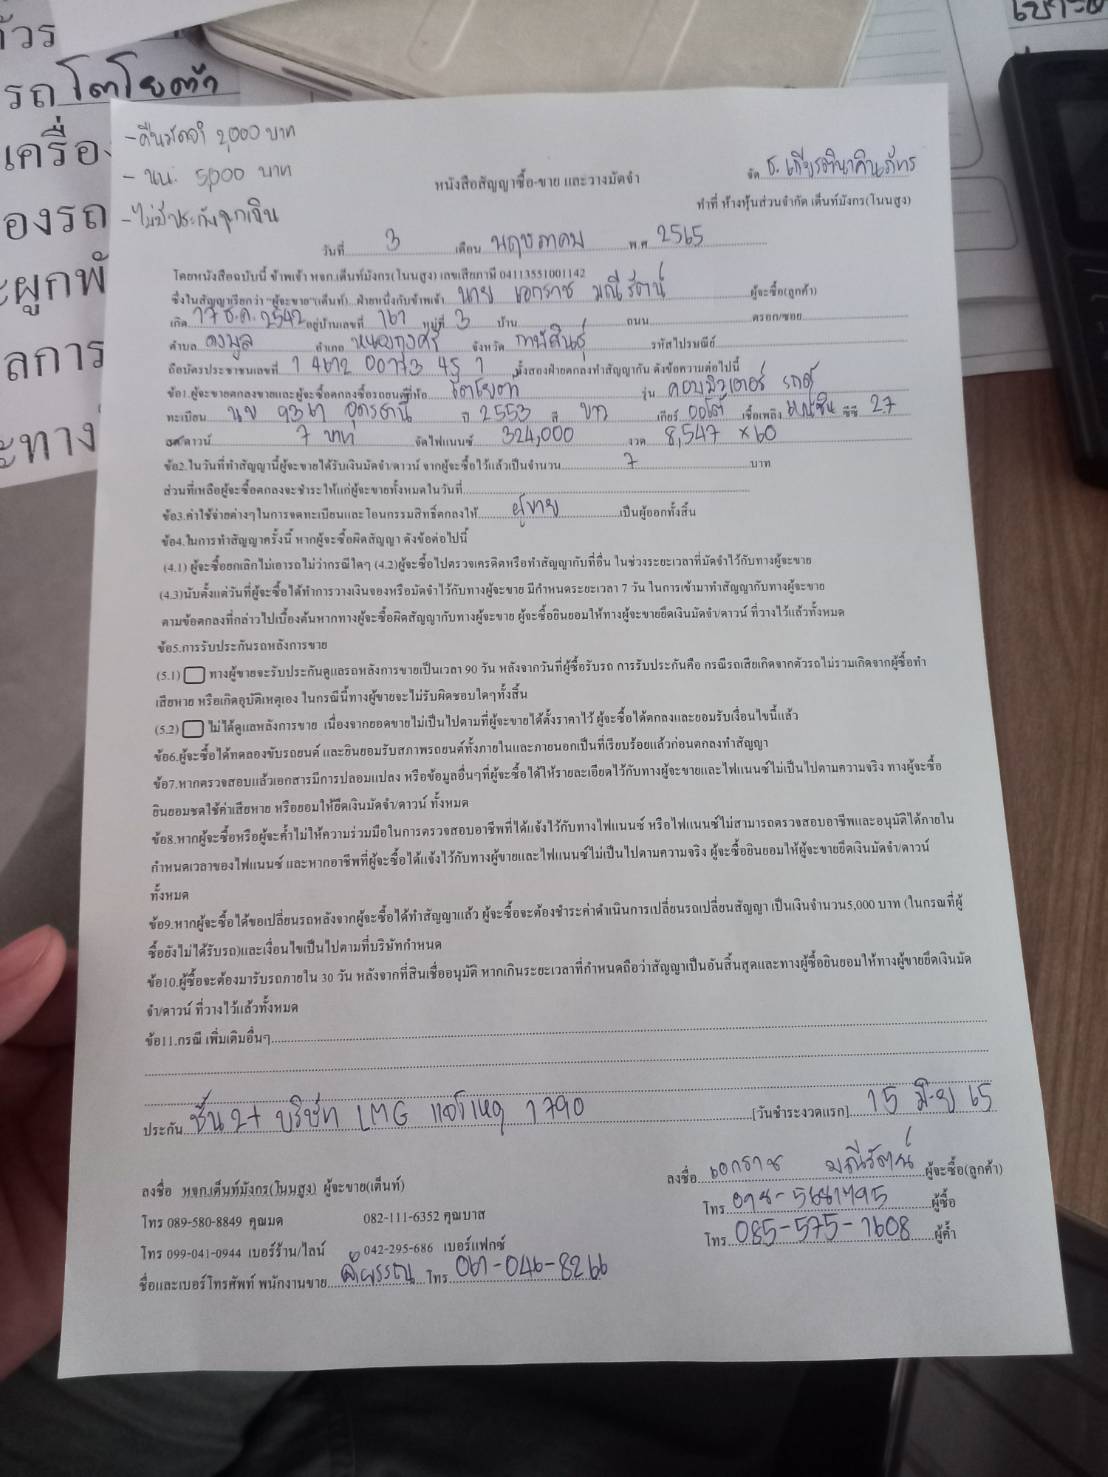 รถ โตโยต้า
เครื่อ
องรถ
ะผูกพั
ลการ
ะทาง
- คืนมัดจำ 2,000 บาท
- นน. 5,000 บาท
- ไม่มีประกันฉุกเฉิน
หนังสือสัญญาซื้อ-ขาย และวางมัดจำ
จัด ธ. เกียรตินาคินภัทร
ทำที่ ห้างหุ้นส่วนจำกัด เต็นท์มังกร(โนนสูง)
วันที่ 3 เดือน พฤษภาคม พ.ศ 2565
โดยหนังสือฉบับนี้ ข้าพเจ้า หจก.เต็นท์มังกร(โนนสูง) เลขเสียภาษี 04113551001142
ซึ่งในสัญญาเรียกว่า "ผู้จะขาย"(เต็นท์) ฝ่ายหนึ่งกับข้าพเจ้า นาย เอกราช มณีรัตน์ ผู้จะซื้อ(ลูกค้า)
เกิด 17 ธ.ค. 2542 อยู่บ้านเลขที่ 161 หมู่ที่ 3 บ้าน ถนน ตรอก/ซอย
ตำบล ดงมูล อำเภอ หนองกุงศรี จังหวัด กาฬสินธุ์ รหัสไปรษณีย์
ถือบัตรประชาชนเลขที่ ทั้งสองฝ่ายตกลงทำสัญญากัน ดังข้อความต่อไปนี้
ข้อ1.ผู้จะขายตกลงขายและผู้จะซื้อตกลงซื้อรถยนต์ยี่ห้อ โตโยต้า รุ่น คอมมิวเตอร์ รถตู้
ทะเบียน นข 9361 อุดรธานี ปี 2553 สี ขาว เกียร์ ออโต้ เชื้อเพลิง เบนซิน ซีซี 2.7
ดาวน์ 7 บาท จัดไฟแนนซ์ 324,000 งวด 8,547 x 60
ข้อ2.ในวันที่ทำสัญญานี้ผู้จะขายได้รับเงินมัดจำ/ดาวน์ จากผู้จะซื้อไว้แล้วเป็นจำนวน 7 บาท
ส่วนที่เหลือผู้จะซื้อตกลงจะชำระให้แก่ผู้จะขายทั้งหมดในวันที่
ข้อ3.ค่าใช้จ่ายต่างๆในการจดทะเบียนและโอนกรรมสิทธิ์ตกลงให้ ผู้ขาย เป็นผู้ออกทั้งสิ้น
ข้อ4.ในการทำสัญญาครั้งนี้ หากผู้จะซื้อผิดสัญญา ดังข้อต่อไปนี้
(4.1) ผู้จะซื้อยกเลิกไม่เอารถไม่ว่ากรณีใดๆ (4.2)ผู้จะซื้อไปตรวจเครดิตหรือทำสัญญากับที่อื่น ในช่วงระยะเวลาที่มัดจำไว้กับทางผู้จะขาย
(4.3)นับตั้งแต่วันที่ผู้จะซื้อได้ทำการวางเงินจองหรือมัดจำไว้กับทางผู้จะขาย มีกำหนดระยะเวลา 7 วัน ในการเข้ามาทำสัญญากับทางผู้จะขาย
ตามข้อตกลงที่กล่าวไปเบื้องต้นหากทางผู้จะซื้อผิดสัญญากับทางผู้จะขาย ผู้จะซื้อยินยอมให้ทางผู้จะขายยึดเงินมัดจำ/ดาวน์ ที่วางไว้แล้วทั้งหมด
ข้อ5.การรับประกันรถหลังการขาย
(5.1) ทางผู้ขายจะรับประกันดูแลรถหลังการขายเป็นเวลา 90 วัน หลังจากวันที่ผู้ซื้อรับรถ การรับประกันคือ กรณีรถเสียเกิดจากตัวรถไม่รวมเกิดจากผู้ซื้อทำ
เสียหาย หรือเกิดอุบัติเหตุเอง ในกรณีนี้ทางผู้ขายจะไม่รับผิดชอบใดๆทั้งสิ้น
(5.2) ไม่ได้ดูแลหลังการขาย เนื่องจากยอดขายไม่เป็นไปตามที่ผู้จะขายได้ตั้งราคาไว้ ผู้จะซื้อได้ตกลงและยอมรับเงื่อนไขนี้แล้ว
ข้อ6.ผู้จะซื้อได้ทดลองขับรถยนต์ และยินยอมรับสภาพรถยนต์ทั้งภายในและภายนอกเป็นที่เรียบร้อยแล้วก่อนตกลงทำสัญญา
ข้อ7.หากตรวจสอบแล้วเอกสารมีการปลอมแปลง หรือข้อมูลอื่นๆที่ผู้จะซื้อได้ให้รายละเอียดไว้กับทางผู้จะขายและไฟแนนซ์ไม่เป็นไปตามความจริง ทางผู้จะซื้อ
ยินยอมชดใช้ค่าเสียหาย หรือยอมให้ยึดเงินมัดจำ/ดาวน์ ทั้งหมด
ข้อ8.หากผู้จะซื้อหรือผู้จะค้ำไม่ให้ความร่วมมือในการตรวจสอบอาชีพที่ได้แจ้งไว้กับทางไฟแนนซ์ หรือไฟแนนซ์ไม่สามารถตรวจสอบอาชีพและอนุมัติได้ภายใน
กำหนดเวลาของไฟแนนซ์ และหากอาชีพที่ผู้จะซื้อได้แจ้งไว้กับทางผู้ขายและไฟแนนซ์ไม่เป็นไปตามความจริง ผู้จะซื้อยินยอมให้ผู้จะขายยึดเงินมัดจำ/ดาวน์
ทั้งหมด
ข้อ9.หากผู้จะซื้อได้ขอเปลี่ยนรถหลังจากผู้จะซื้อได้ทำสัญญาแล้ว ผู้จะซื้อจะต้องชำระค่าดำเนินการเปลี่ยนรถเปลี่ยนสัญญา เป็นเงินจำนวน5,000 บาท (ในกรณที่ผู้
ซื้อยังไม่ได้รับรถ)และเงื่อนไขเป็นไปตามที่บริษัทกำหนด
ข้อ10.ผู้ซื้อจะต้องมารับรถภายใน 30 วัน หลังจากที่สินเชื่ออนุมัติ หากเกินระยะเวลาที่กำหนดถือว่าสัญญาเป็นอันสิ้นสุดและทางผู้ซื้อยินยอมให้ทางผู้ขายยึดเงินมัด
จำ/ดาวน์ ที่วางไว้แล้วทั้งหมด
ข้อ11.กรณี เพิ่มเติมอื่นๆ
ประกัน ชั้น 2+ บริษัท LMG แจ้งเหตุ 1790 [วันชำระงวดแรก] 15 มิ.ย 65
ลงชื่อ หจก.เต็นท์มังกร(โนนสูง) ผู้จะขาย(เต็นท์)
ลงชื่อ เอกราช มณีรัตน์ ผู้จะซื้อ(ลูกค้า)
โทร 089-580-8849 คุณมด 082-111-6352 คุณบาส
โทร 098-5681495 ผู้ซื้อ
โทร 099-041-0944 เบอร์ร้าน/ไลน์ 042-295-686 เบอร์แฟกซ์
โทร 085-575-1608 ผู้ค้ำ
ชื่อและเบอร์โทรศัพท์ พนักงานขาย โทร 061-046-8266